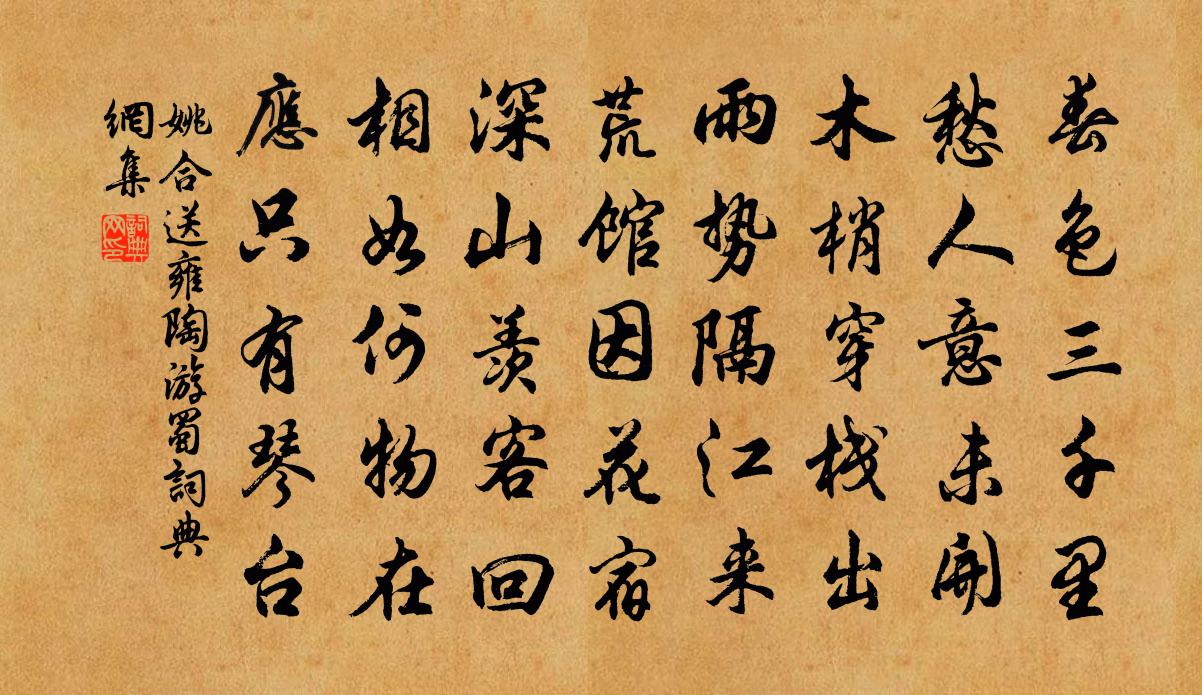 春色三千里
愁人意未開
木梢穿栈出
雨势隔江来
荒馆因花宿
深山羡客回
相如何物在
應只有琴台
姚合送雍陶游蜀詞典
網集
詞典
网印